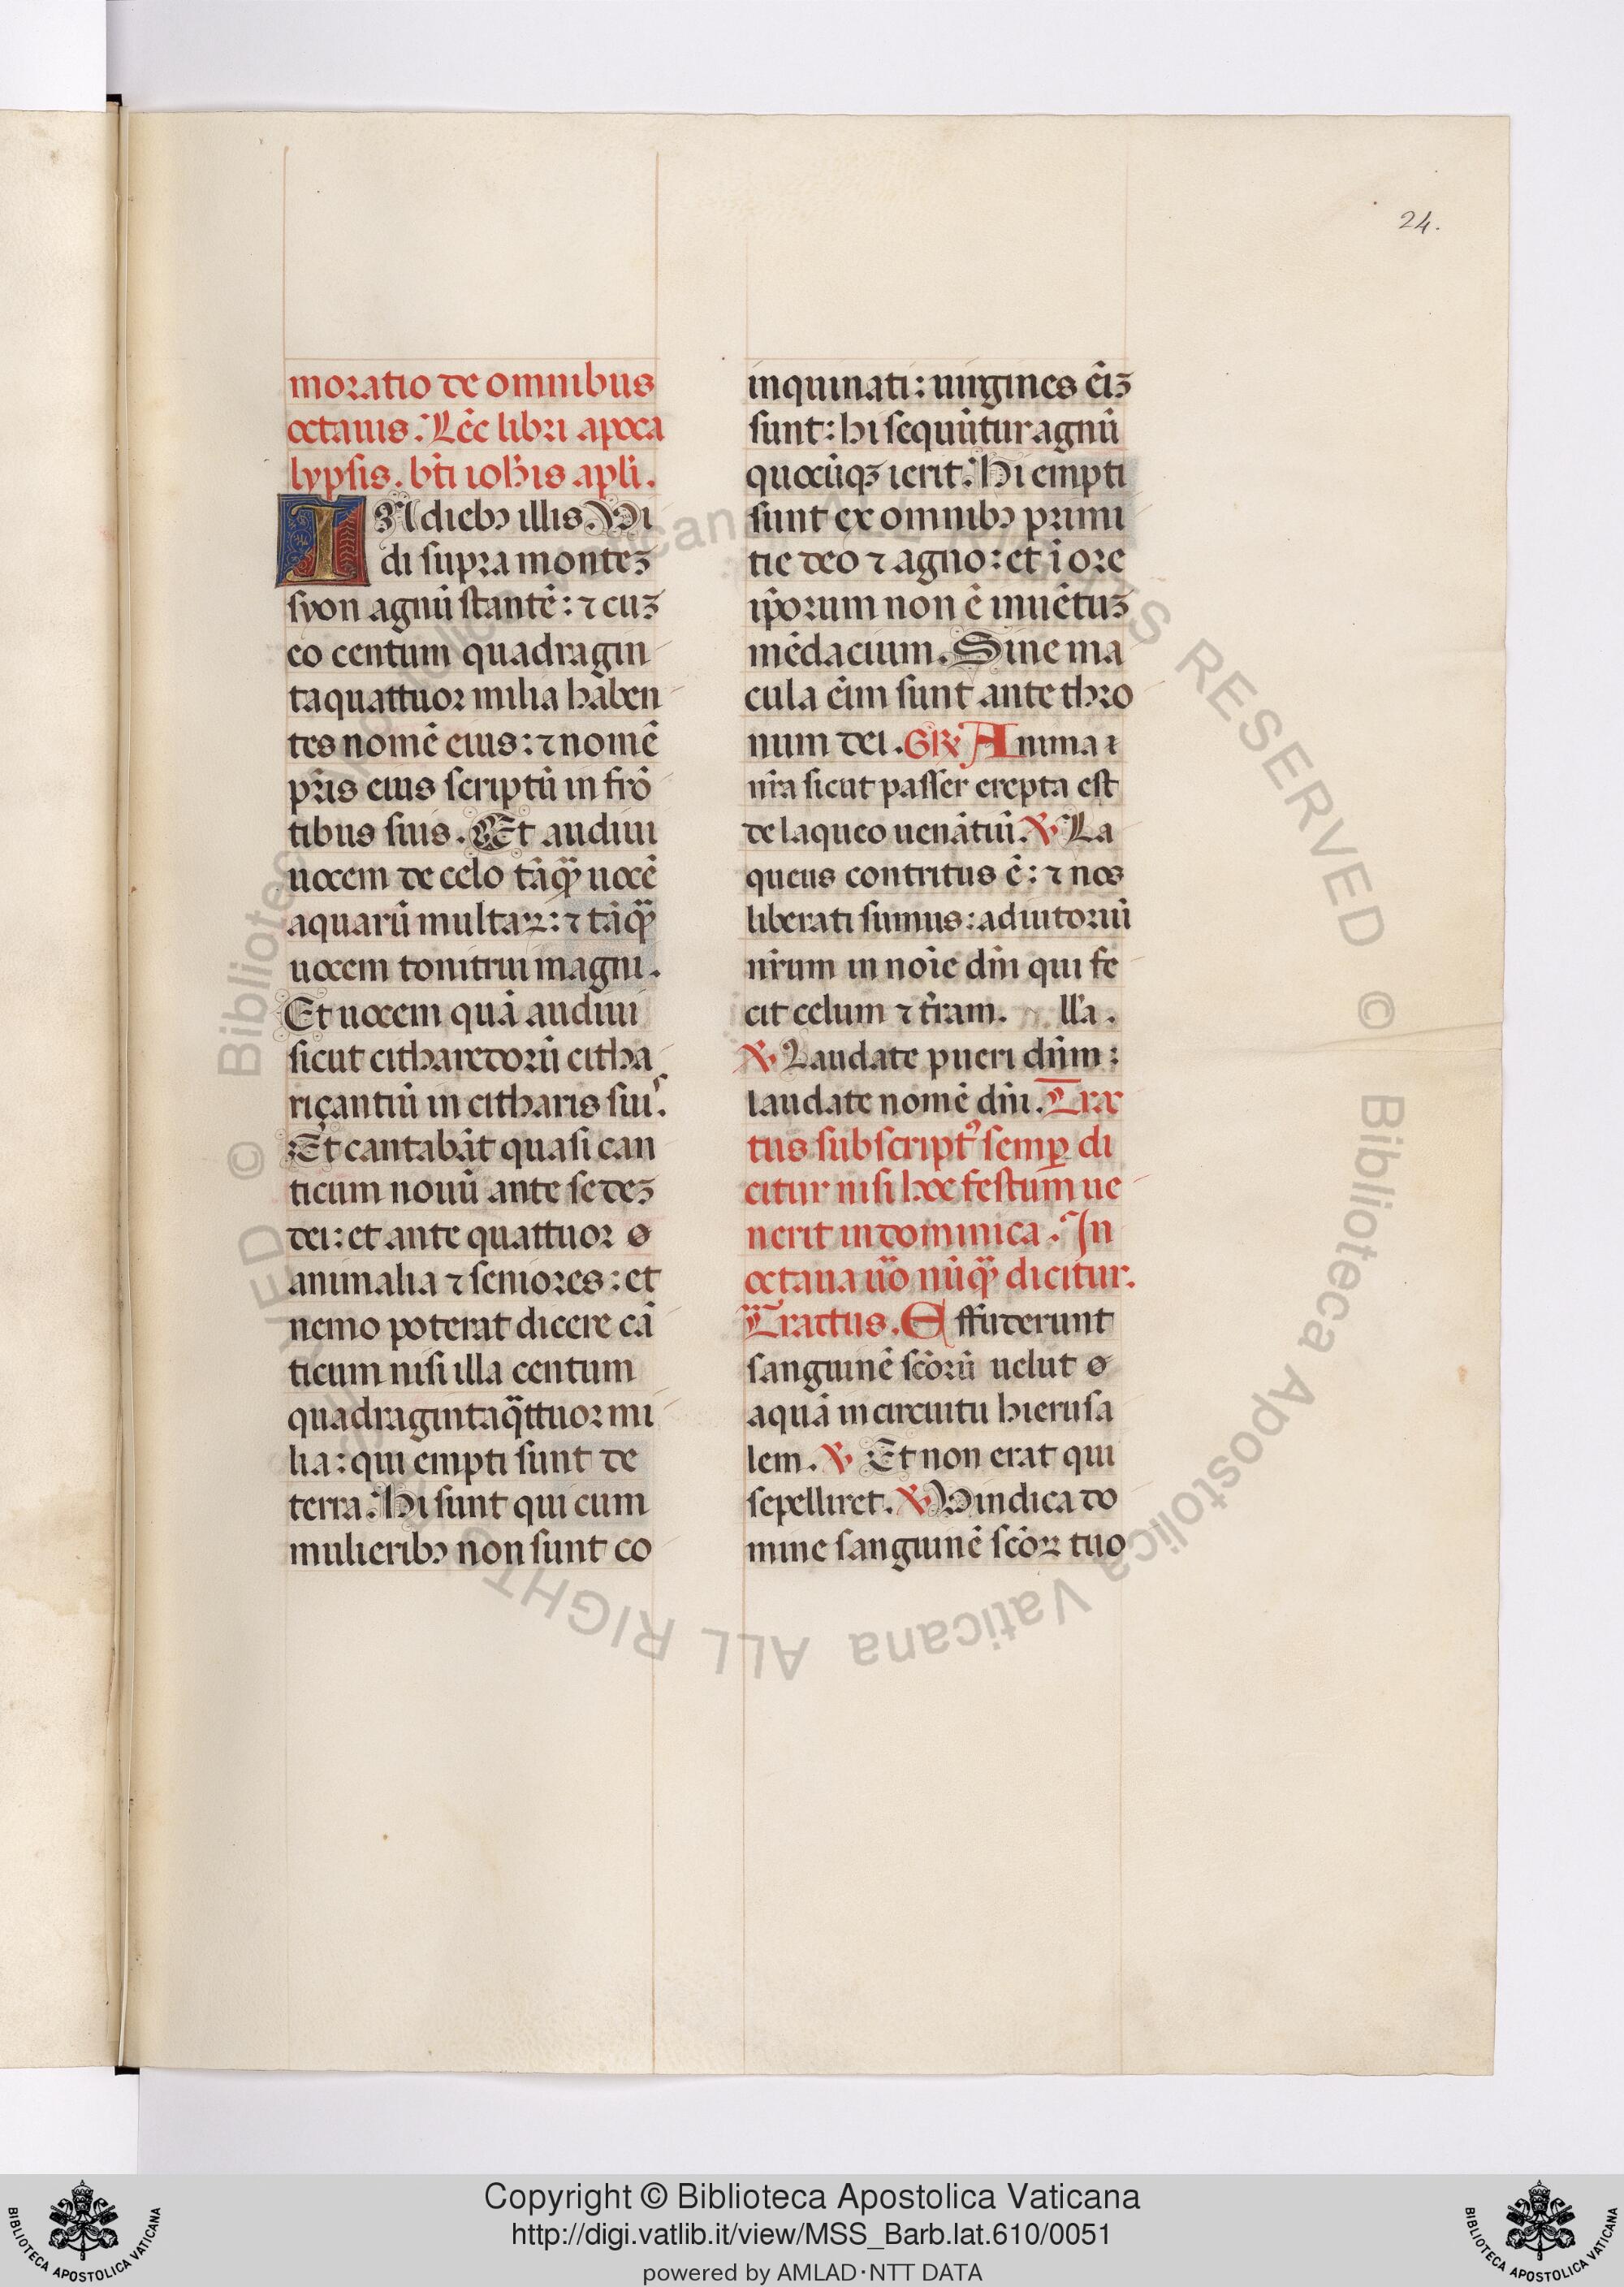 24.
moratio de omnibus
octauis. Lec̄ libri apoca
lypsis. bt̄i ioh̄is apl̄i.
IN dieb⁹ illis. Vi
di supra monteꝫ
syon agnū stantē: ⁊ cuꝫ
eo centum quadragin
taquattuor milia haben
tes nomē eius: ⁊ nomē
pr̄is eius scriptū in frō
tibus suis. Et audiui
uocem de celo tāꝙ uocē
aquarū multaꝝ: ⁊ tāꝙ
uocem tonitrui magni.
Et uocem quā audiui
sicut citharedorū citha
riçantiū in citharis suis.
Et cantabāt quasi can
ticum nouū ante sedeꝫ
dei: et ante quattuor
animalia ⁊ seniores: et
nemo poterat dicere cā
ticum nisi illa centum
quadragintaqᵃttuor mi
lia: qui empti sunt de
terra. Hi sunt qui cum
mulierib⁹ non sunt co
inquinati: uirgines ēiꝫ
sunt: hi sequūtur agnū
quocūqꝫ ierit. Hi empti
sunt ex omnib⁹ primi
tie deo ⁊ agno: et ī ore
ip̄orum non ē inuētuꝫ
mēdacium. Sine ma
cula ēim sunt ante thro
num dei. GR̃ Anima
nr̄a sicut passer erepta est
de laqueo uenātiū. ℣ La
queus contritus ē: ⁊ nos
liberati sumus: adiutoriū
nr̄um in noīe dn̄i qui fe
cit celum ⁊ tr̄am. ll̄a.
℣ Laudate pueri dn̄m:
laudate nomē dn̄i. Trac
tus subscript⁹ semꝑ di
citur nisi hoc festum ue
nerit in dominica. In
octaua uᵒ nūꝙ dicitur.
Tractus. Effuderunt
sanguinē scōrū uelut
aquā in circuitu hierusa
lem. ℣ Et non erat qui
sepelliret. ℣ Vindica do
mine sanguinē scōꝝ tuo
Copyright © Biblioteca Apostolica Vaticana
http://digi.vatlib.it/view/MSS_Barb.lat.610/0051
powered by AMLAD·NTT DATA
BIBLIOTECA APOSTOLICA VATICANA
BIBLIOTECA APOSTOLICA VATICANA
© Biblioteca Apostolica Vaticana ALL RIGHTS RESERVED © Biblioteca Apostolica Vaticana ALL RIGHTS RESERVED